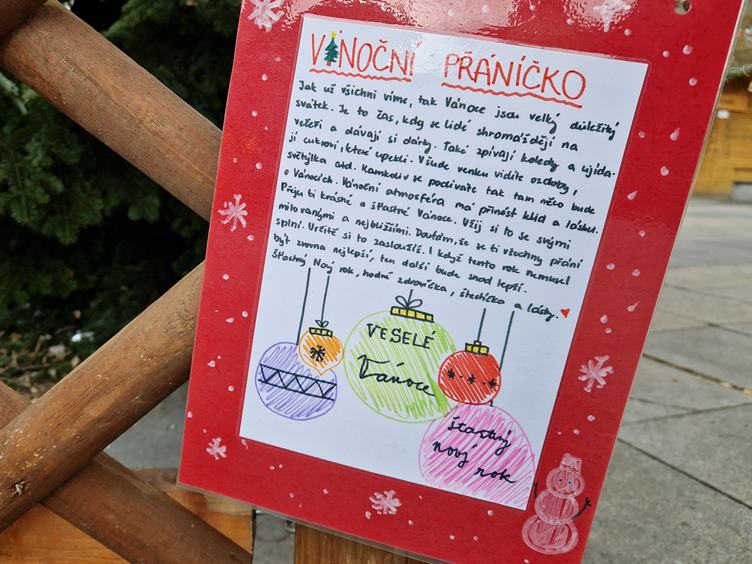 VÁNOČNÍ PŘÁNÍČKO
Jak už všichni víme, tak Vánoce jsou velký důležitý
svátek. Je to čas, kdy se lidé shromáždějí na
večeři a dávají si dárky. Také zpívají koledy a ujída-
jí cukroví, které upekli. Všude venku vidíte ozdoby,
světýlka atd. Kamkoliv se podíváte tak tam něco bude
o Vánocích. Vánoční atmosféra má přinést klid a lásku.
Přeju ti krásné a šťastné Vánoce. Užij si to se svými
milovanými a nejbližšími. Doufám, že se ti všechny přání
splní. Určitě si to zasloužíš. I když tento rok nemusel
být zrovna nejlepší, ten další bude snad lepší.
Šťastný Nový rok, hodně zdravíčka, štěstíčka a lásky.
VESELÉ
Vánoce
šťastný
nový rok